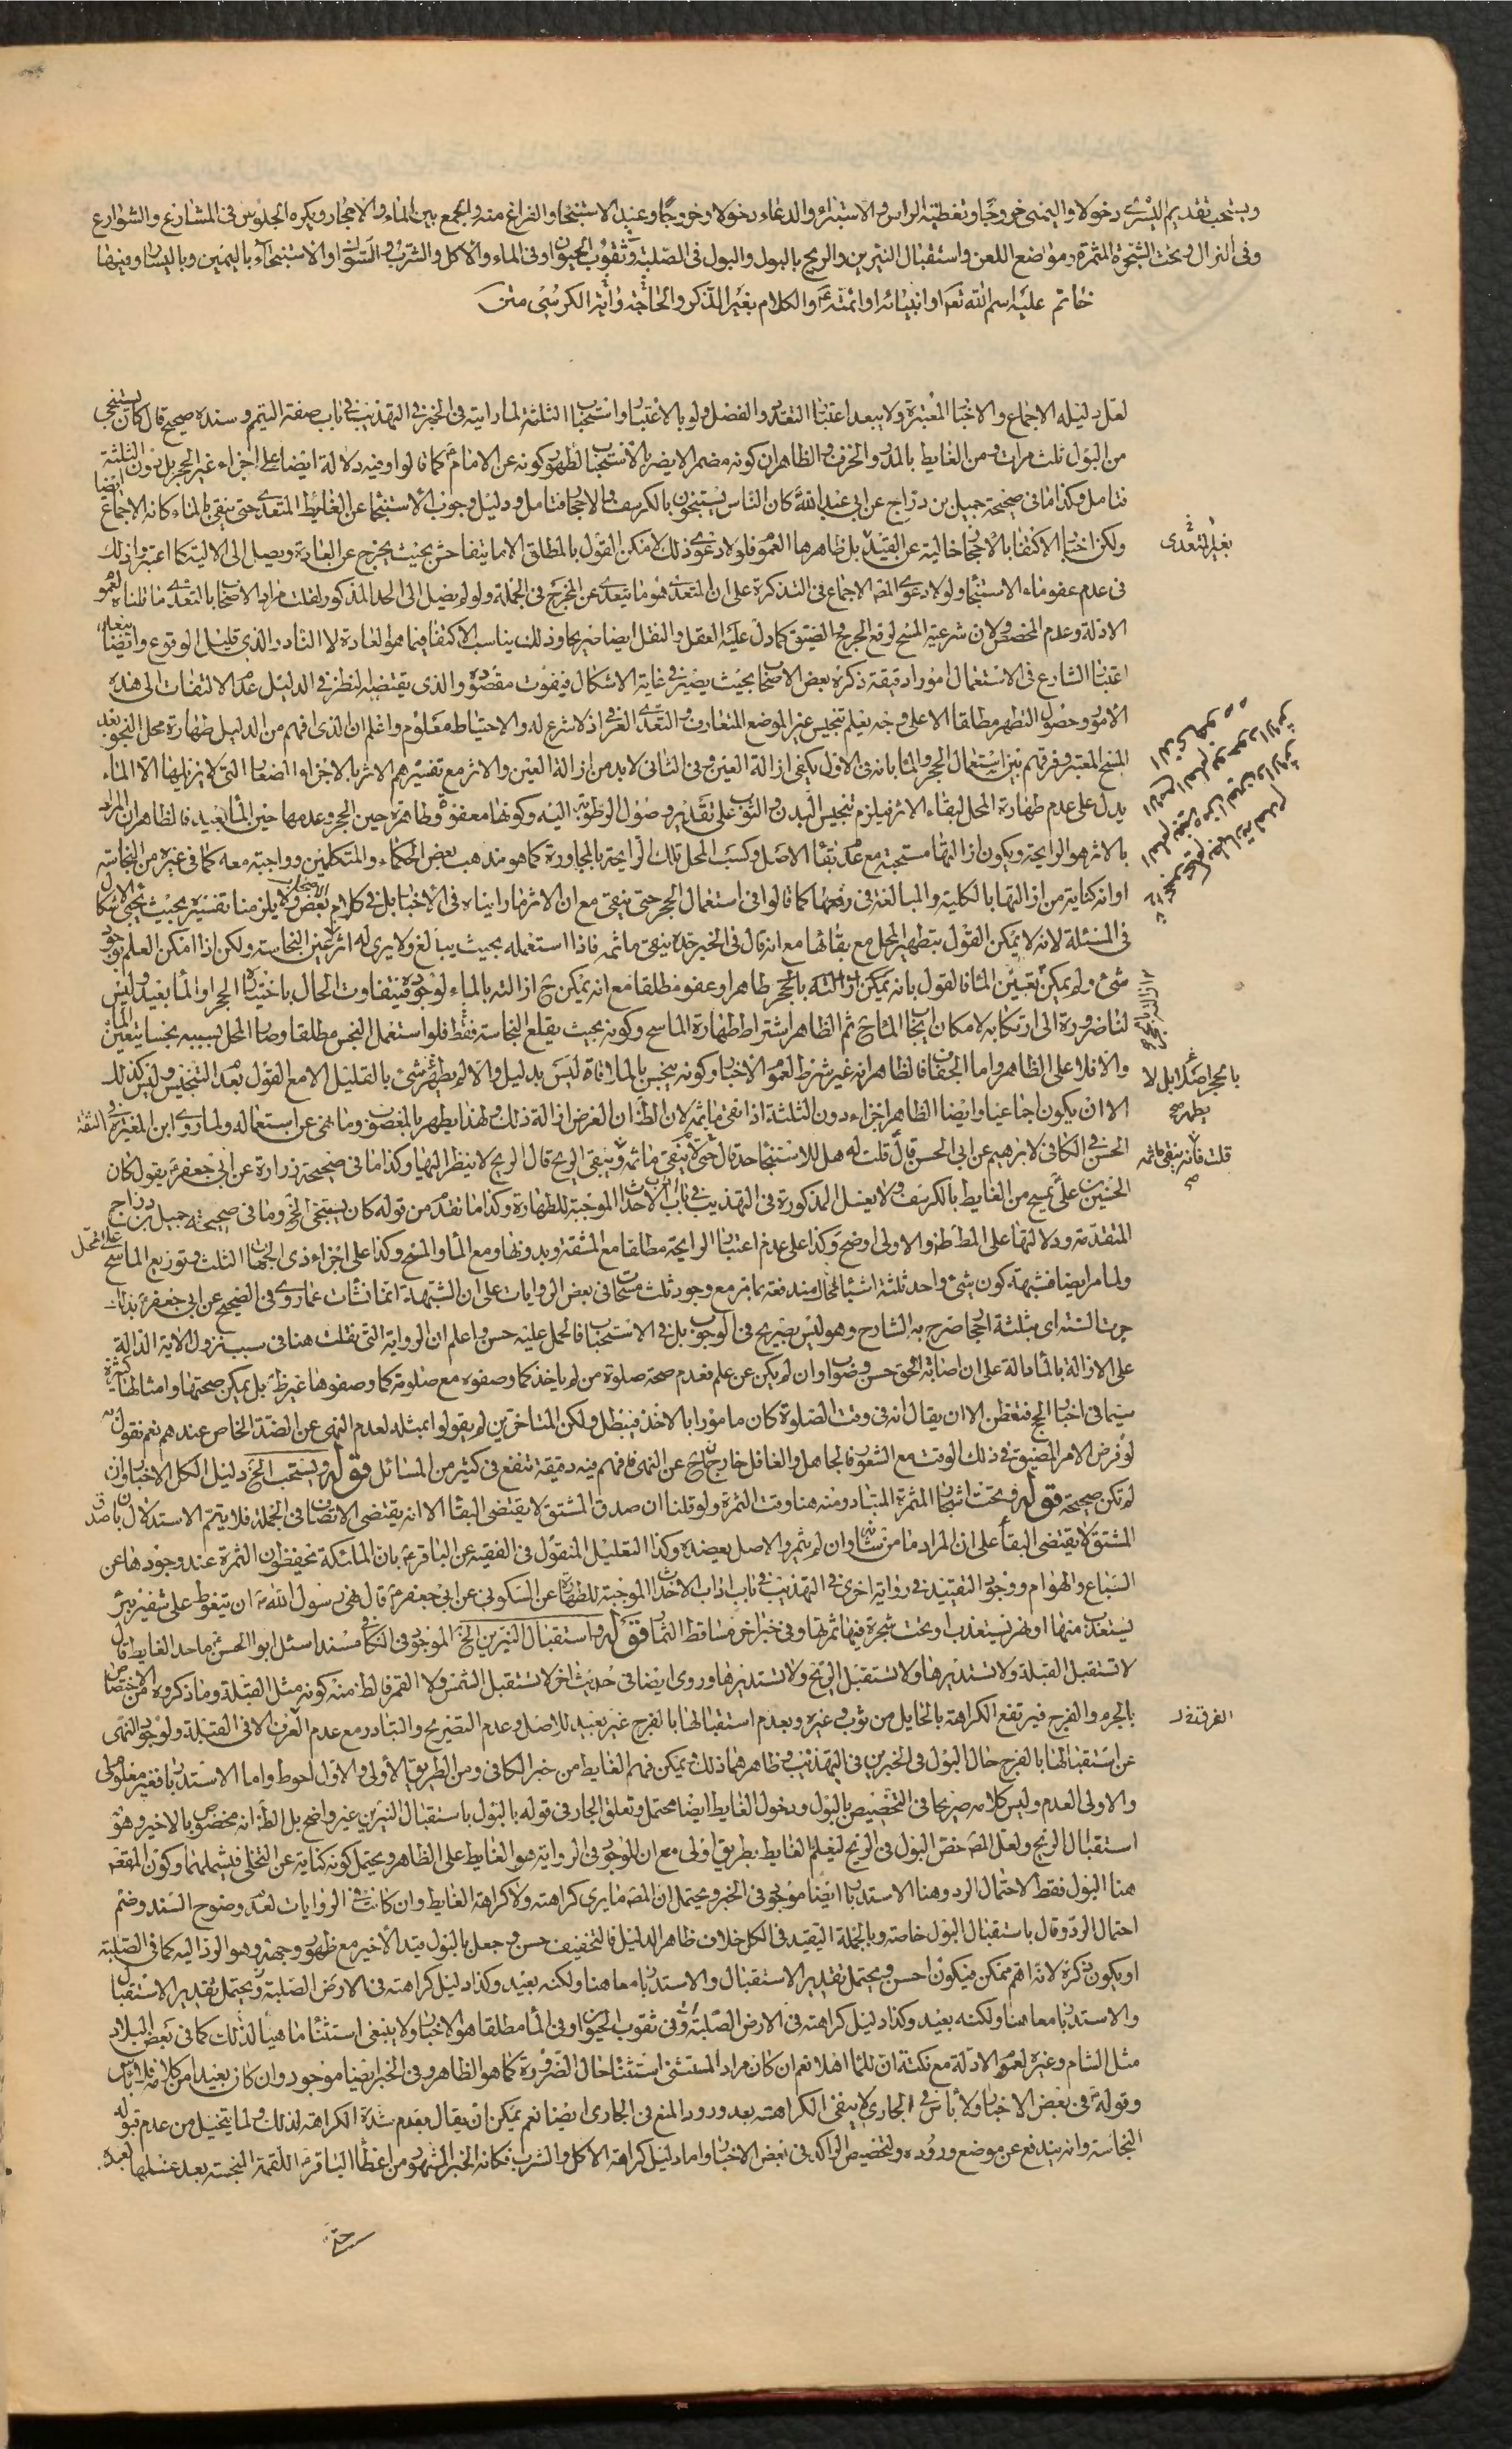 ويستحب تقديم اليسرى دخولا واليمنى خروجا وتغطية الراس والاستبراء والدعاء دخولا وخروجا وعند الاستنجاء والفراغ منه والجمع بين الماء والاحجار ويكره الجلوس فى المشارع والشوارع
وفى النزال وتحت الشجرة المثمرة ومواضع اللعن واستقبال النيرين والريح بالبول والبول فى الصلبة وثقوب الحيوان وفى الماء والاكل والشرب والسواك والاستنجاء باليمين وباليسار وفيها
خاتم عليه اسم الله تعم او انبيائه او ائمته ع والكلام بغير الذكر والحاجة واية الكرسى متن
لعل دليله الاجماع والاخبار المعتبرة ولا يبعد اعتبار التعدد والفصل ولو بالاعتبار واستحباب الثلثة لما رايته فى الخبر فى التهذيب فى باب صفة التيمم وسنده صحيح قال كان يستنجى
من البول ثلث مرات ومن الغايط بالمدر والخزف والظاهر ان كونه مضمرا لا يضر بالاستحباب لظهور كونه عن الامام ع كما قالوا وفيه دلالة ايضا على اجزاء غير الحجر بل دون الثلثة ايضا
فتامل وكذا ما فى صحيحة جميل بن دراج عن ابى عبد الله ع كان الناس يستنجون بالكرسف والاحجار فتامل ودليل وجوب الاستنجاء عن الغائط المتعدى حتى ينقى بالماء كانه الاجماع
ولكن اخبار الاكتفاء بالاحجار خالية عن القيد بل ظاهرها العموم فلولا دعوى ذلك لامكن القول بالمطلق الا ما يتفاحش بحيث يخرج عن العادة ويصل الى الالية كما اعتبر ذلك
بغير المتعدى
فى عدم عفو ماء الاستنجاء ولولا دعوى المصـ الاجماع فى التذكرة على ان المتعدى هو ما يتعدى عن المخرج فى الجملة ولو لم يصل الى الحد المذكور لقلت مراد الاصحاب بالتعدى ما قلناه لعموم
الادلة وعدم المخصص ولان شرعية المسح لوقع الحرج والضيق كما دل عليه العقل والنقل ايضا صريحا وذلك يناسب الاكتفاء فيما هو العادة لا النادر الذى قليل الوقوع وايضا
اعتبار الشارع فى الاستعمال امورا دقيقة ذكره بعض الاصحاب بحيث يصير فى غاية الاشكال فيفوت مقصوده والذى يقتضيه النظر فى الدليل عدم الالتفات الى هذه
الامور وحصول التطهر مطلقا الا على وجه يعلم تنجيس غير الموضع المتعارف والتعدى العرفى اذ لا شرع له والاحتياط معلوم واعلم ان الذى افهم من الدليل طهارة محل النجو بعد
المسح المعتبر وفرقهم بين استعمال الحجر والماء بانه فى الاول يكفى ازالة العين وفى الثانى لابد من ازالة العين والاثر مع تفسيرهم الاثر بالاجزاء الصغار التى لا يزيلها الا الماء
يدل على عدم طهارة المحل لبقاء الاثر فيلزم تنجيس البدن والثوب على تقدير وصول الرطوبة اليه وكونها معفوة وطاهرة حين الحجر وعدمها حين الماء بعيد فالظاهر ان المراد
بالاثر هو الرايحة ويكون ازالتها مستحبة مع عدم بقاء الاصل وكسب المحل تلك الرايحة بالمجاورة كما هو مذهب بعض الحكماء والمتكلمين وواجبة معه كما فى غيره من النجاسة
او انه كناية من ازالتها بالكلية والمبالغة فى رفعها كما قالوا فى استعمال الحجر حتى ينقى مع ان الاثر ما رايناه فى الاخبار بل فى كلام بعض الاصحاب ولا يلزمنا تفسيره بحيث يجئ الاشكال
فى المسئلة لانه لا يمكن القول بتطهير المحل مع بقائها مع انه قال فى الخبر حده ينقى ما ثمة فاذا استعمله بحيث يبالغ ولا يرى له اثر عين النجاسة ولكن اذا امكن العلم بوجود
شئ ولم يمكن تعيين الماء فالقول بانه يمكن ازالته بالحجر طاهر او عفو مطلقا مع انه يمكن ح ازالته بالماء لوجوده فيتفاوت الحال باختيار الحجر او الماء بعيد وليس
لنا ضرورة الى ارتكابه لامكان ايجاب الماء ح ثم الظاهر اشتراط طهارة الماسح وكونه بحيث يقلع النجاسة فقط فلو استعمل النجس مطلقا وصار المحل بسببه نجسا يتعين الماء
والا فلا على الظاهر واما الجفاف فالظاهر انه غير شرط لعموم الاخبار وكونه ينجس بالملاقاة ليس بدليل والا لم يطهر شئ بالقليل الا مع القول بعد التنجيس وليس كذلك
بالحجر اصلا بل لا يطهر صح
الا ان يكون اجماعيا وايضا الظاهر اجزاء دون الثلثة اذا نقى ما ثمه لان الظ ان الغرض ازالة ذلك ولهذا يطهر بالمغصوب وما نهى عن استعماله ولما روى ابن المغيرة الثقة
الحسن فى الكافى لابرهيم عن ابى الحسن ع قال قلت له هل للاستنجاء حد قال حتى لا ينقى ما ثمه ويبقى الريح قال الريح لا ينظر اليها وكذا ما فى صحيحة زرارة عن ابى جعفر ع يقول كان
قلت فانه ينقى ما ثمه
الحسين بن على ع يمسح من الغايط بالكرسف ولا يغسل المذكورة فى التهذيب فى باب اداب الاحداث الموجبة للطهارة وكذا ما تقدم من قوله كان يستنجى الخ وما فى صحيحة جميل بن دراج
المتقدمة ودلالتها على المط ظ والاولى اوضح وكذا على عدم اعتبار الرايحة مطلقا مع المشقة وبدونها ومع الماء والمسح وكذا على اجزاء ذى الجهات الثلث وتوزيع الماسح على المحل
ولما مر ايضا فشبهة كون شئ واحد ثلثة اشياء محال مندفعة بما مر مع وجود ثلث مسحات فى بعض الروايات على ان الشبهة انما نشات عما روى فى الصحيح عن ابى جعفر ع بذلك
جرت السنة اى بثلثة احجار صرح به الشارح وهو ليس بصريح فى الوجوب بل فى الاستحباب فالحمل عليه حسن واعلم ان الرواية التى نقلت هنا فى سبب نزول الاية الدالة
على الازالة بالماء دالة على ان اصابة الحق حسن وصواب وان لم يكن عن علم فعدم صحة صلوة من لم ياخذ كما وصفوه مع صلوته كما وصفوها غير ظ بل يمكن صحتها وامثالها كثيرة
سيما فى اخبار الحج فتفطن الا ان يقال انه فى وقت الصلوة كان مامورا بالاخذ فيبطل ولكن المتاخرين لم يقولوا بمثله لعدم النهى عن الضد الخاص عندهم نعم نقول به
لو فرض الامر المضيق فى ذلك الوقت مع الشعور فالجاهل والغافل خارجان ح عن النهى فافهم فيه دقيقة تنفع فى كثير من المسائل قوله ويستحب الخ دليل الكل الاخبار وان
لم تكن صحيحة قوله وتحت اشجار المثمرة المتبادر منه هنا وقت الثمرة ولو قلنا ان صدق المشتق لا يقتضى البقاء الا انه يقتضى الاتصاف فى الجملة فلا يتم الاستدلال بان صدق
المشتق لا يقتضى البقاء على ان المراد ما من شانه وان لم يثمر والاصل يعضده وكذا التعليل المنقول فى الفقيه عن الباقر ع بان الملئكة تحفظون الثمرة عند وجودها عن
السباع والهوام ووجود التقييد فى رواية اخرى فى التهذيب فى باب اداب الاحداث الموجبة للطهارة عن السكونى عن ابى جعفر ع قال نهى رسول الله ص ان يتغوط على شفير بئر
يستعذب منها او نهر يستعذب او تحت شجرة فيها ثمرتها وفى خبر اخر مساقط الثمار قوله واستقبال النيرين الخ الموجود فى الكافى مسندا سئل ابو الحسن ع ما حد الغايط قال
لا تستقبل القبلة ولا تستدبرها ولا تستقبل الريح ولا تستدبرها وروى ايضا فى حديث اخر لا تستقبل الشمس ولا القمر فالظ منه كونه مثل القبلة وما ذكروه من الاختصاص
بالجرم والفرج فيرتفع الكراهة بالحايل من ثوب وغيره وبعدم استقبالها بالفرج غير بعيد للاصل وعدم التصريح والتبادر مع عدم العرف الا فى القبلة ولوجود النهى
عن استقبالها بالفرج حال البول فى الخبرين فى التهذيب وظاهرهما ذلك ويمكن فهم الغايط من خبر الكافى ومن الطريق الاولى والاول احوط واما الاستدبار فغير معلوم
والاولى العدم وليس كلامه صريحا فى التخصيص بالبول ودخول الغايط ايضا محتمل وتعلق الجار فى قوله بالبول باستقبال النيرين غير واضح بل الظ انه مخصوص بالاخير وهو
استقبال الريح ولعل المصـ خص البول فى الريح ليعلم الغايط بطريق اولى مع ان الموجود فى الرواية هو الغايط على الظاهر ويحتمل كونه كناية عن التخلى فيشملهما وكون المقصـ
هنا البول فقط لاحتمال الرد وهنا الاستدبار ايضا موجود فى الخبر ويحتمل ان المصـ ما يرى كراهته ولا كراهة الغايط وان كانت فى الروايات لعدم وضوح السند وضم
احتمال الرد وقال باستقبال البول خاصة وبالجملة التقييد فى الكل خلاف ظاهر الدليل فالتخفيف حسن وجعل بالبول قيد الاخير مع ظهور وجهه وهو الرد اليه كما فى الصلبة
او يكون ذكره لانه اهم ممكن فيكون احسن ويحتمل تقدير الاستقبال والاستدبار معا هنا ولكنه بعيد وكذا دليل كراهته فى الارض الصلبة ويحتمل تقدير الاستقبال
والاستدبار معا هنا ولكنه بعيد وكذا دليل كراهته فى الارض الصلبة وفى ثقوب الحيوان وفى الماء مطلقا هو الاخبار ولا ينبغى استثناء ما هيا لذلك كما فى بعض البلاد
مثل الشام وغيره لعموم الادلة مع نكتة ان للماء اهلا نعم ان كان مراد المستثنى استثناء حال الضرورة كما هو الظاهر وفى الخبر ايضا موجود وان كان بعيدا من كلامه فلا باس
وقوله ع فى بعض الاخبار ولا باس فى الجارى لا ينفى الكراهة بعد ورود المنع فى الجارى ايضا نعم يمكن ان يقال بعدم شدة الكراهة لذلك ولما يتخيل من عدم قبوله
النجاسة وانه يندفع عن موضع وروده ولتخصيص الراكد فى بعض الاخبار واما دليل كراهة الاكل والشرب فكانه الخبر المشهور من اعطاء الباقر ع اللقمة النجسة بعد غسلها لعبده